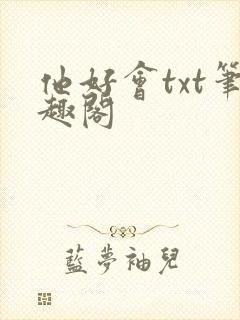 他好會txt筆
趣閣
藍夢袖兒